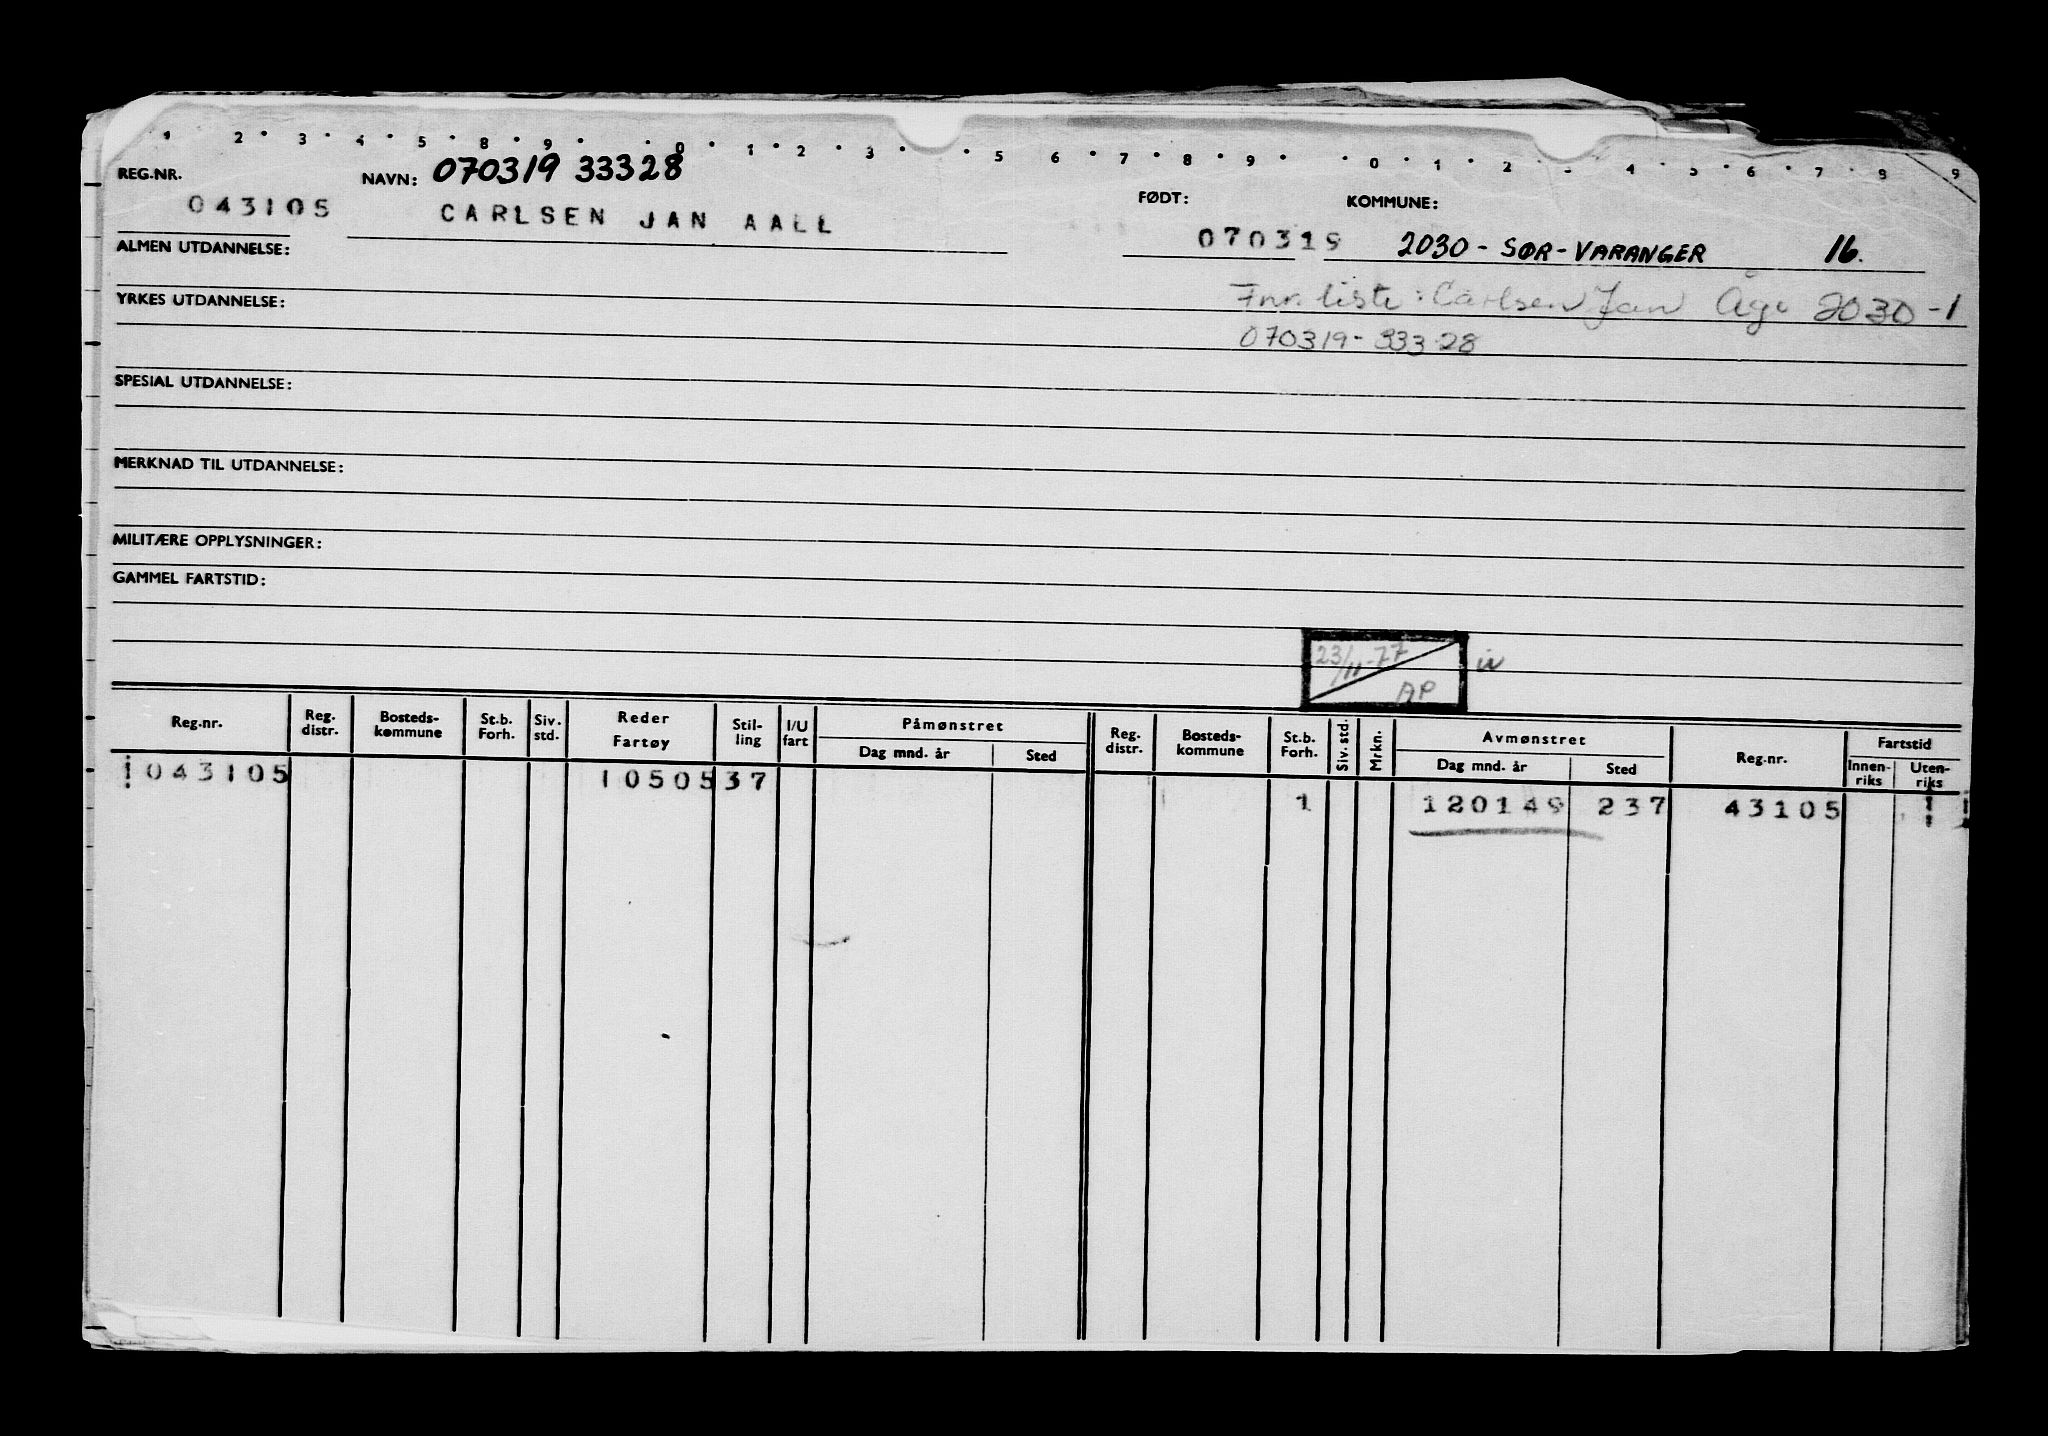 1 2 3 4 5 8 9 0 1 2 3 5 6 7 8 9 0 1 2 3 4 5 6 7 8 9
REG.NR. NAVN: 070319 33328 FØDT: KOMMUNE:
043105 CARLSEN JAN AALL 070319 2030 - SØR - VARANGER 16.
ALMEN UTDANNELSE:
Fnr. liste: Carlsen Jan Åge 2030-1
YRKES UTDANNELSE:
070319-333 28
SPESIAL UTDANNELSE:
MERKNAD TIL UTDANNELSE:
MILITÆRE OPPLYSNINGER:
GAMMEL FARTSTID:
23/11-77
AP
Reg.nr. Reg. distr. Bosteds-kommune St.b. Forh. Siv. std. Reder Fartøy Stil-ling I/U fart Påmønstret Dag mnd. år Sted Reg. distr. Bosteds-kommune St.b. Forh. Siv. std. Mrkn. Avmønstret Dag mnd. år Sted Reg.nr. Fartstid Innen-riks Uten-riks
! 043105 1050537
1 120149 237 43105 ! !